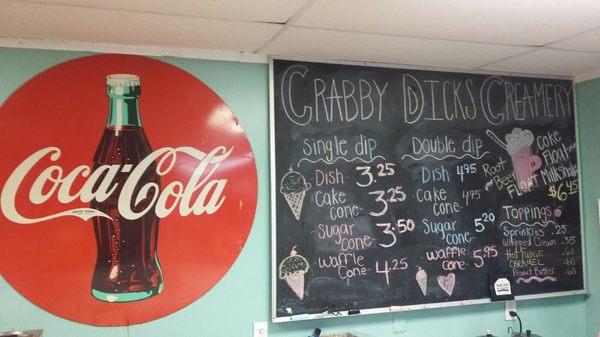 Coca-Cola
TRADE MARK
CRABBY DICKS CREAMERY
Single dip
DISH 3.25
CAKE cone 3.25
SUGAR cone 3.50
Waffle cone 4.25
Double dip
DISH 4.95
CAKE cone 4.95
SUGAR cone 5.20
waffle cone 5.95
Root Beer Float
Coke Float
Milkshake
$6.45
Toppings
Sprinkles .25
Whipped Cream .35
HOT FUDGE .60
CARAMEL .60
Peanut Butter .60